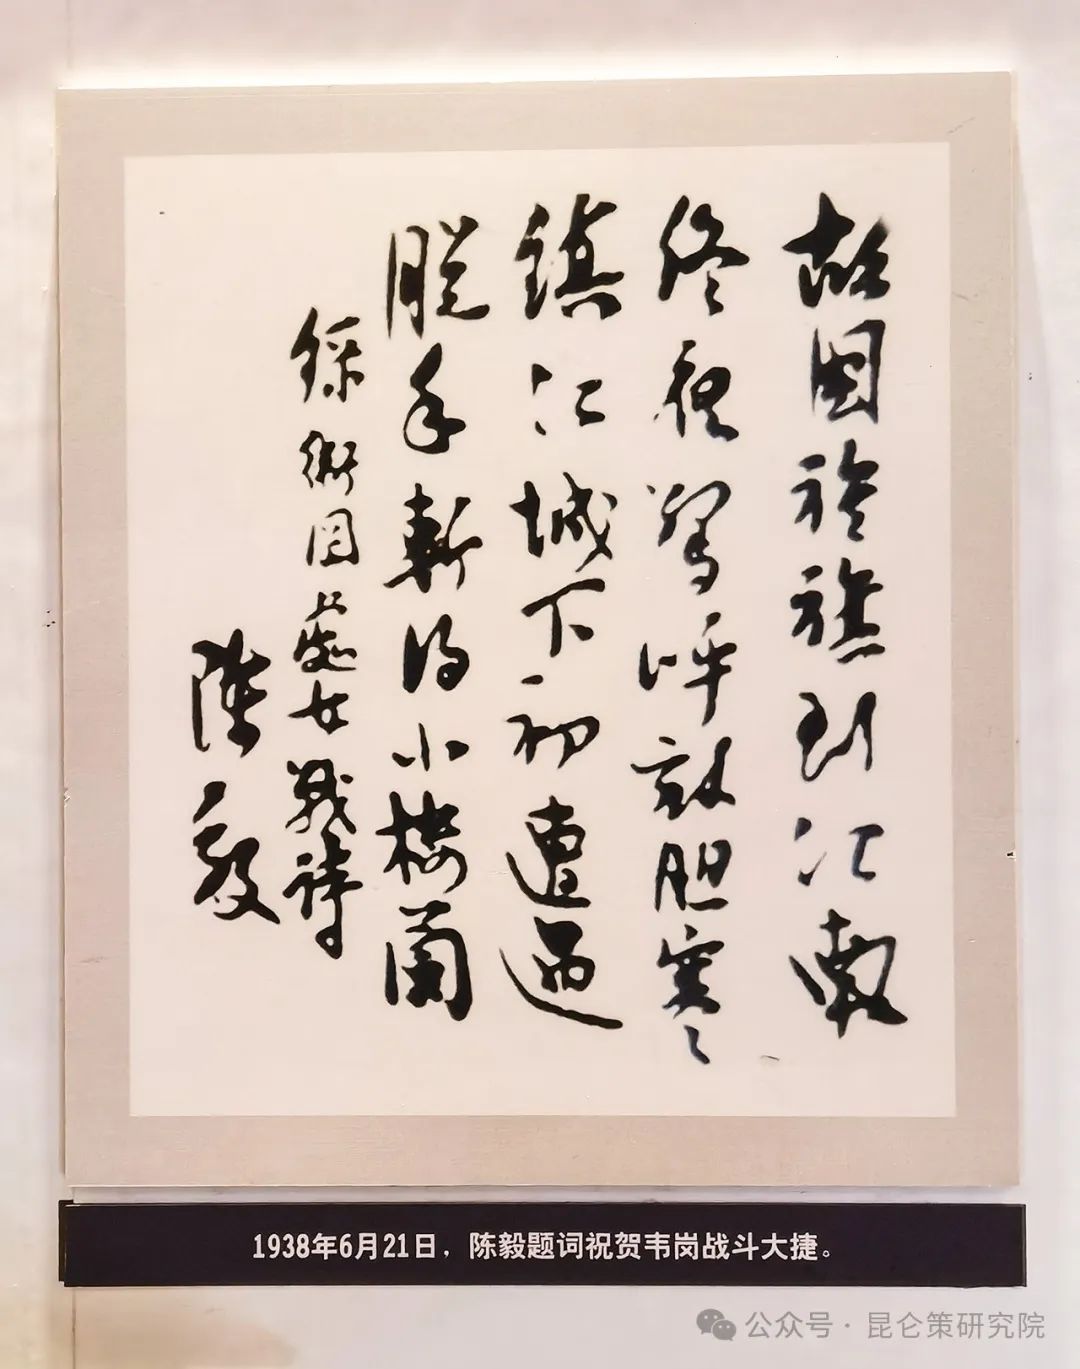 故国旌旗到江南
终夜驚呼敌胆寒
鎮江城下初遭遇
脱手斬得小楼蘭
録衛岡處女戰詩
陳毅
1938年6月21日，陈毅题词祝贺韦岗战斗大捷。
公众号·昆仑策研究院